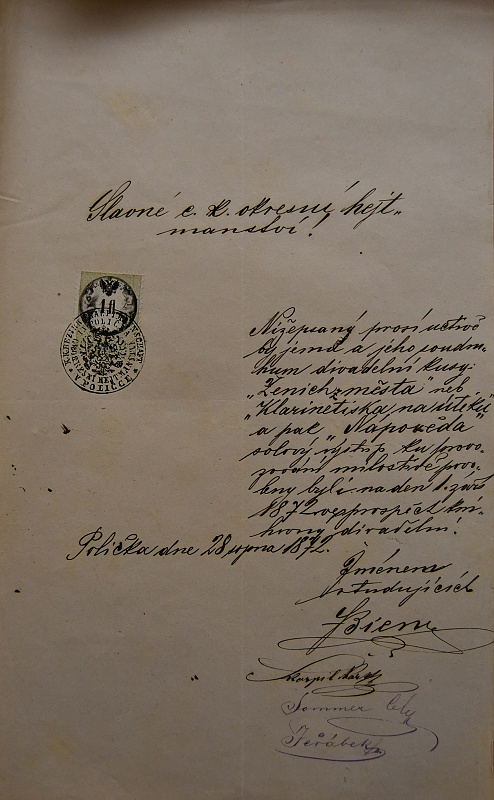 Slavné c. k. okresní hejt=
manství!
10
Nížepsaný prosí uctivě
by jemu a jeho soudru-
hum divadelní kusy:
„Ženich z města" neb
„Klarinetiska na útěku"
a pak „Napověda"
solový výstup ku provo-
zování milostivě povo-
leny byli na den 1. září
1872 ve prospěch kni-
hovny divadelní.
Polička dne 28 srpna 1872.
Jménem
studujících
Škorpil
Sommer
Jeřábek